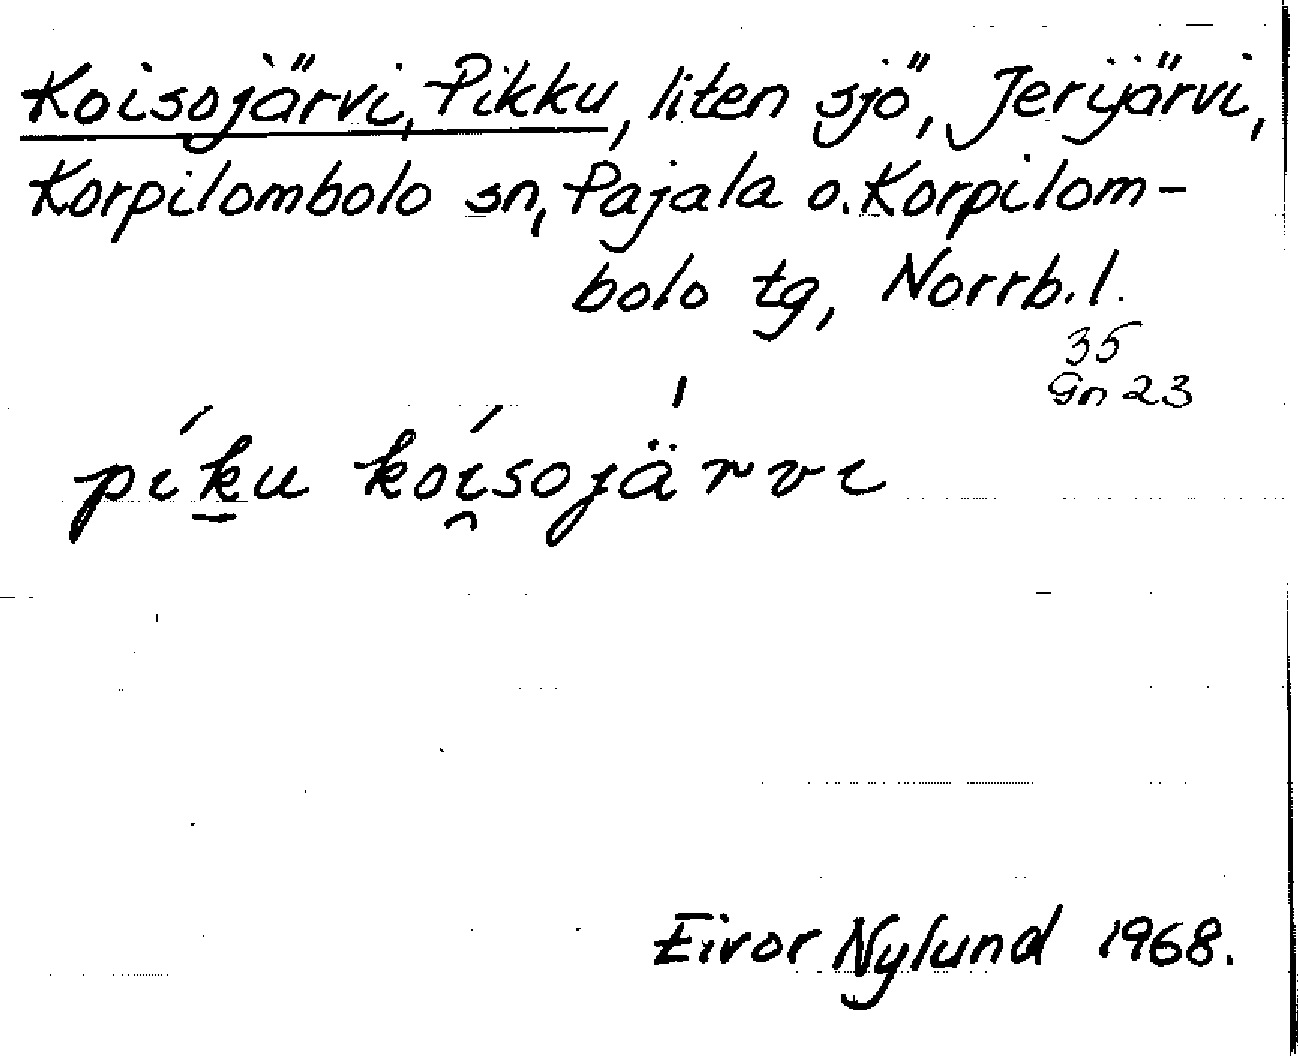 Koisojärvi, Pikku, liten sjö, Jerijärvi,
Korpilombolo sn, Pajala o. Korpilom-
bolo tg, Norrb. l.
35
Gn 23
pík̲u koí̯sojä̍rvi
Eivor Nylund 1968.